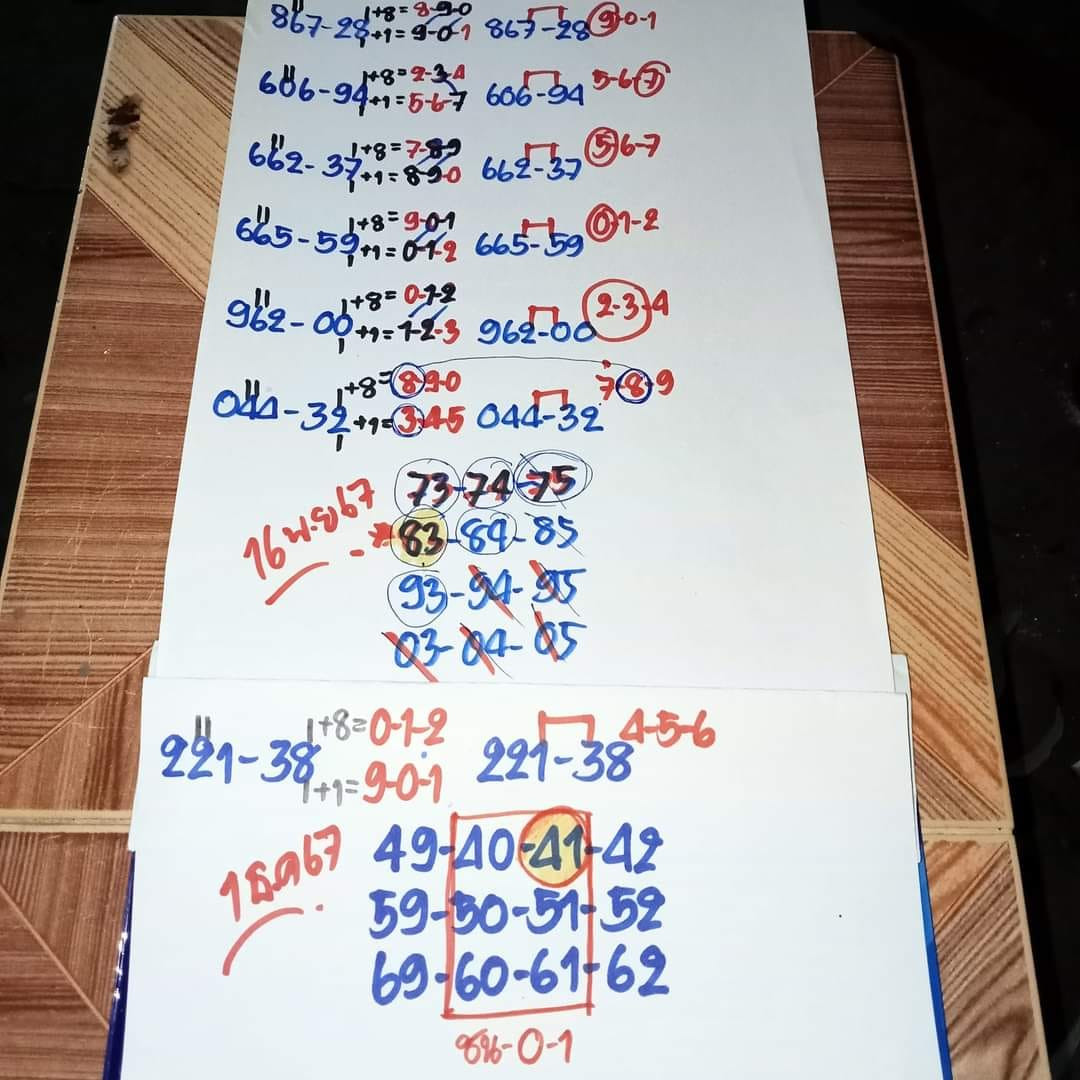 867-28 +8=8-9-0 867-28 9-0-1
+1=9-0-1
606-94 +8=2-3-4 606-94 5-6-7
+1=5-6-7
662-37 +8=7-8-9 662-37 5-6-7
+1=8-9-0
665-59 +8=9-0-1 665-59 0-1-2
+1=0-1-2
962-00 +8=0-1-2 962-00 2-3-4
+1=1-2-3
044-32 +8=8-9-0 044-32 7-8-9
+1=3-4-5
16 พ.ย 67
73-74-75
83-84-85
93-94-95
03-04-05
221-38 +8=0-1-2 221-38 4-5-6
+1=9-0-1
1 ธ.ค 67
49-40-41-42
59-50-51-52
69-60-61-62
-0-1